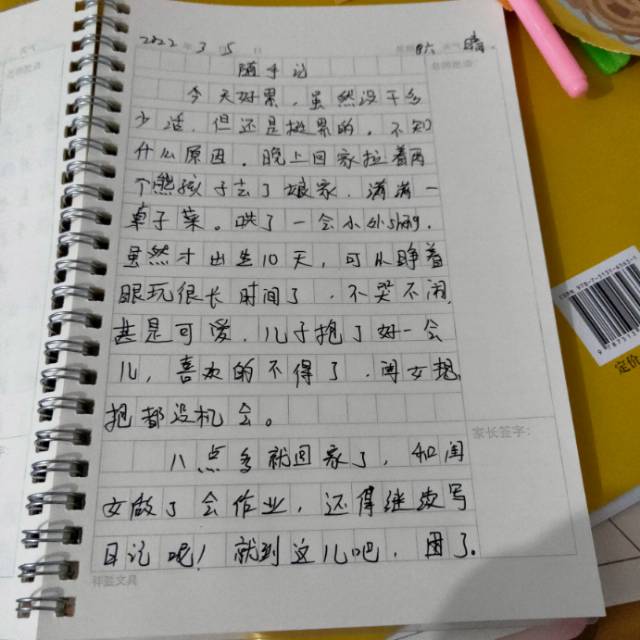 2022 3 5 晴
随手记
今天好累，虽然没干多
少活，但还是挺累的。不知
什么原因。晚上回家拉着两
个熊孩子去了娘家，满满一
桌子菜。哄了一会小外sheng，
虽然才出生10天，可以睁着
眼玩很长时间了，不哭不闹，
甚是可爱，儿子抱了好一会
儿，喜欢的不得了，闺女抱
抱都没机会。
八点多就回家了，和闺
女做了会作业，还得继续写
日记呢！就到这儿吧，困了。
家长签字：
祥蓝文具
定价